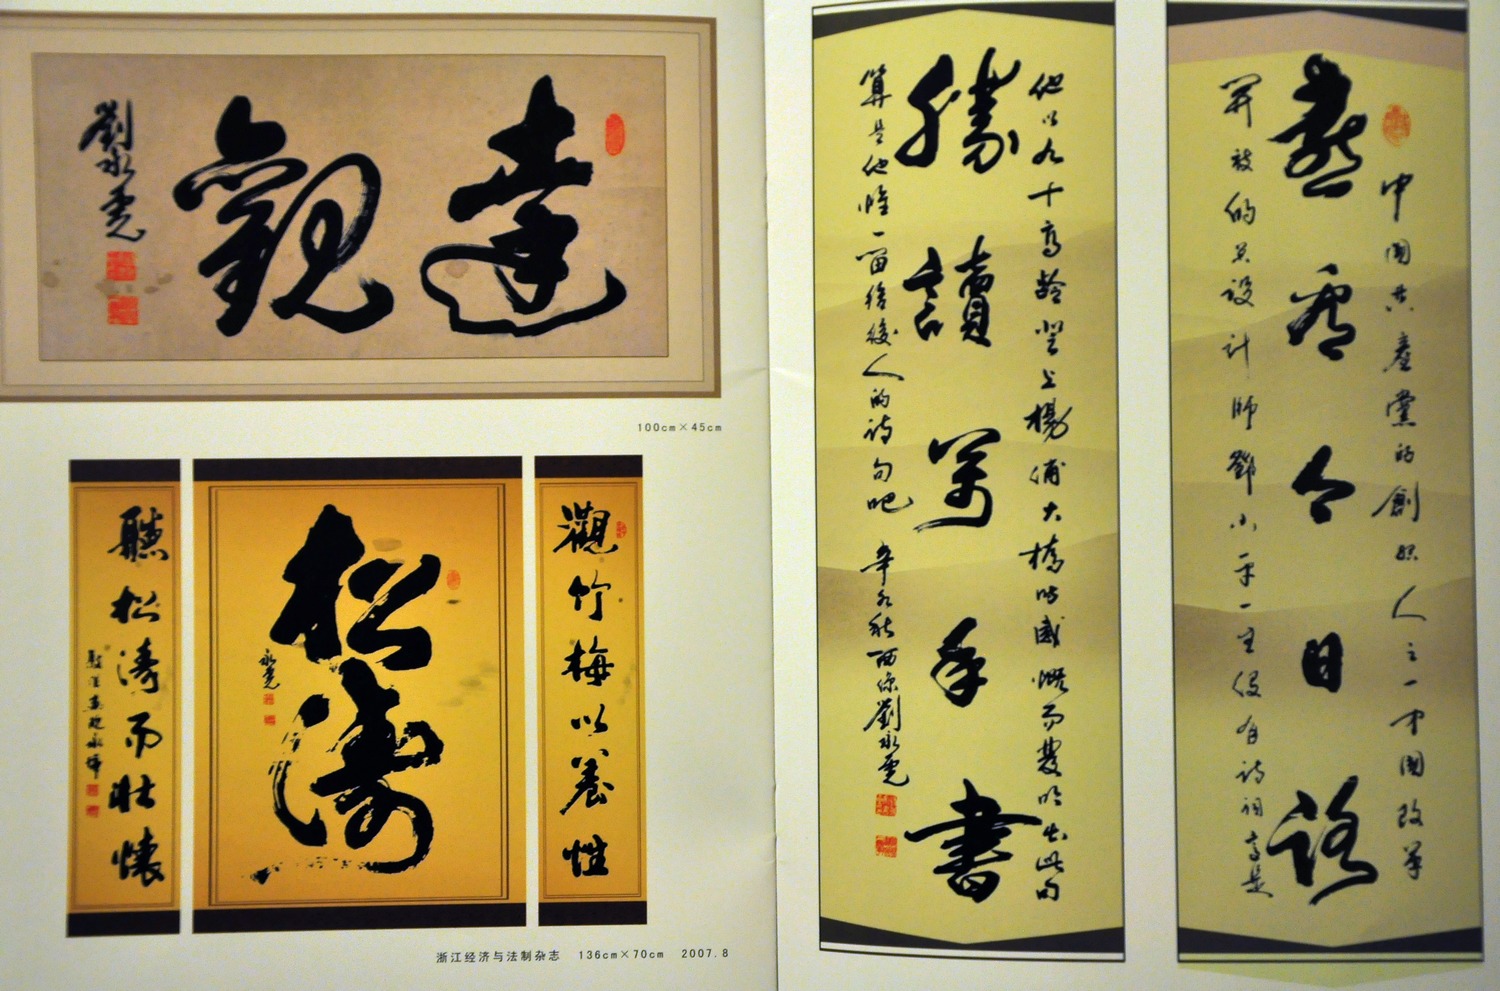 達觀
劉永
100cm×45cm
觀竹梅以養性
松濤
永
聽松濤而壯懷
浙江经济与法制杂志 136cm×70cm 2007.8
中國共產黨的創始人之一中國改革
喜看今日路
開放的總設計師鄧小平一生没有詩詞
他以九十高齡登上楊浦大橋時感慨而發吟出此句
勝讀萬年書
算是他惟一留給後人的詩句吧 劉永